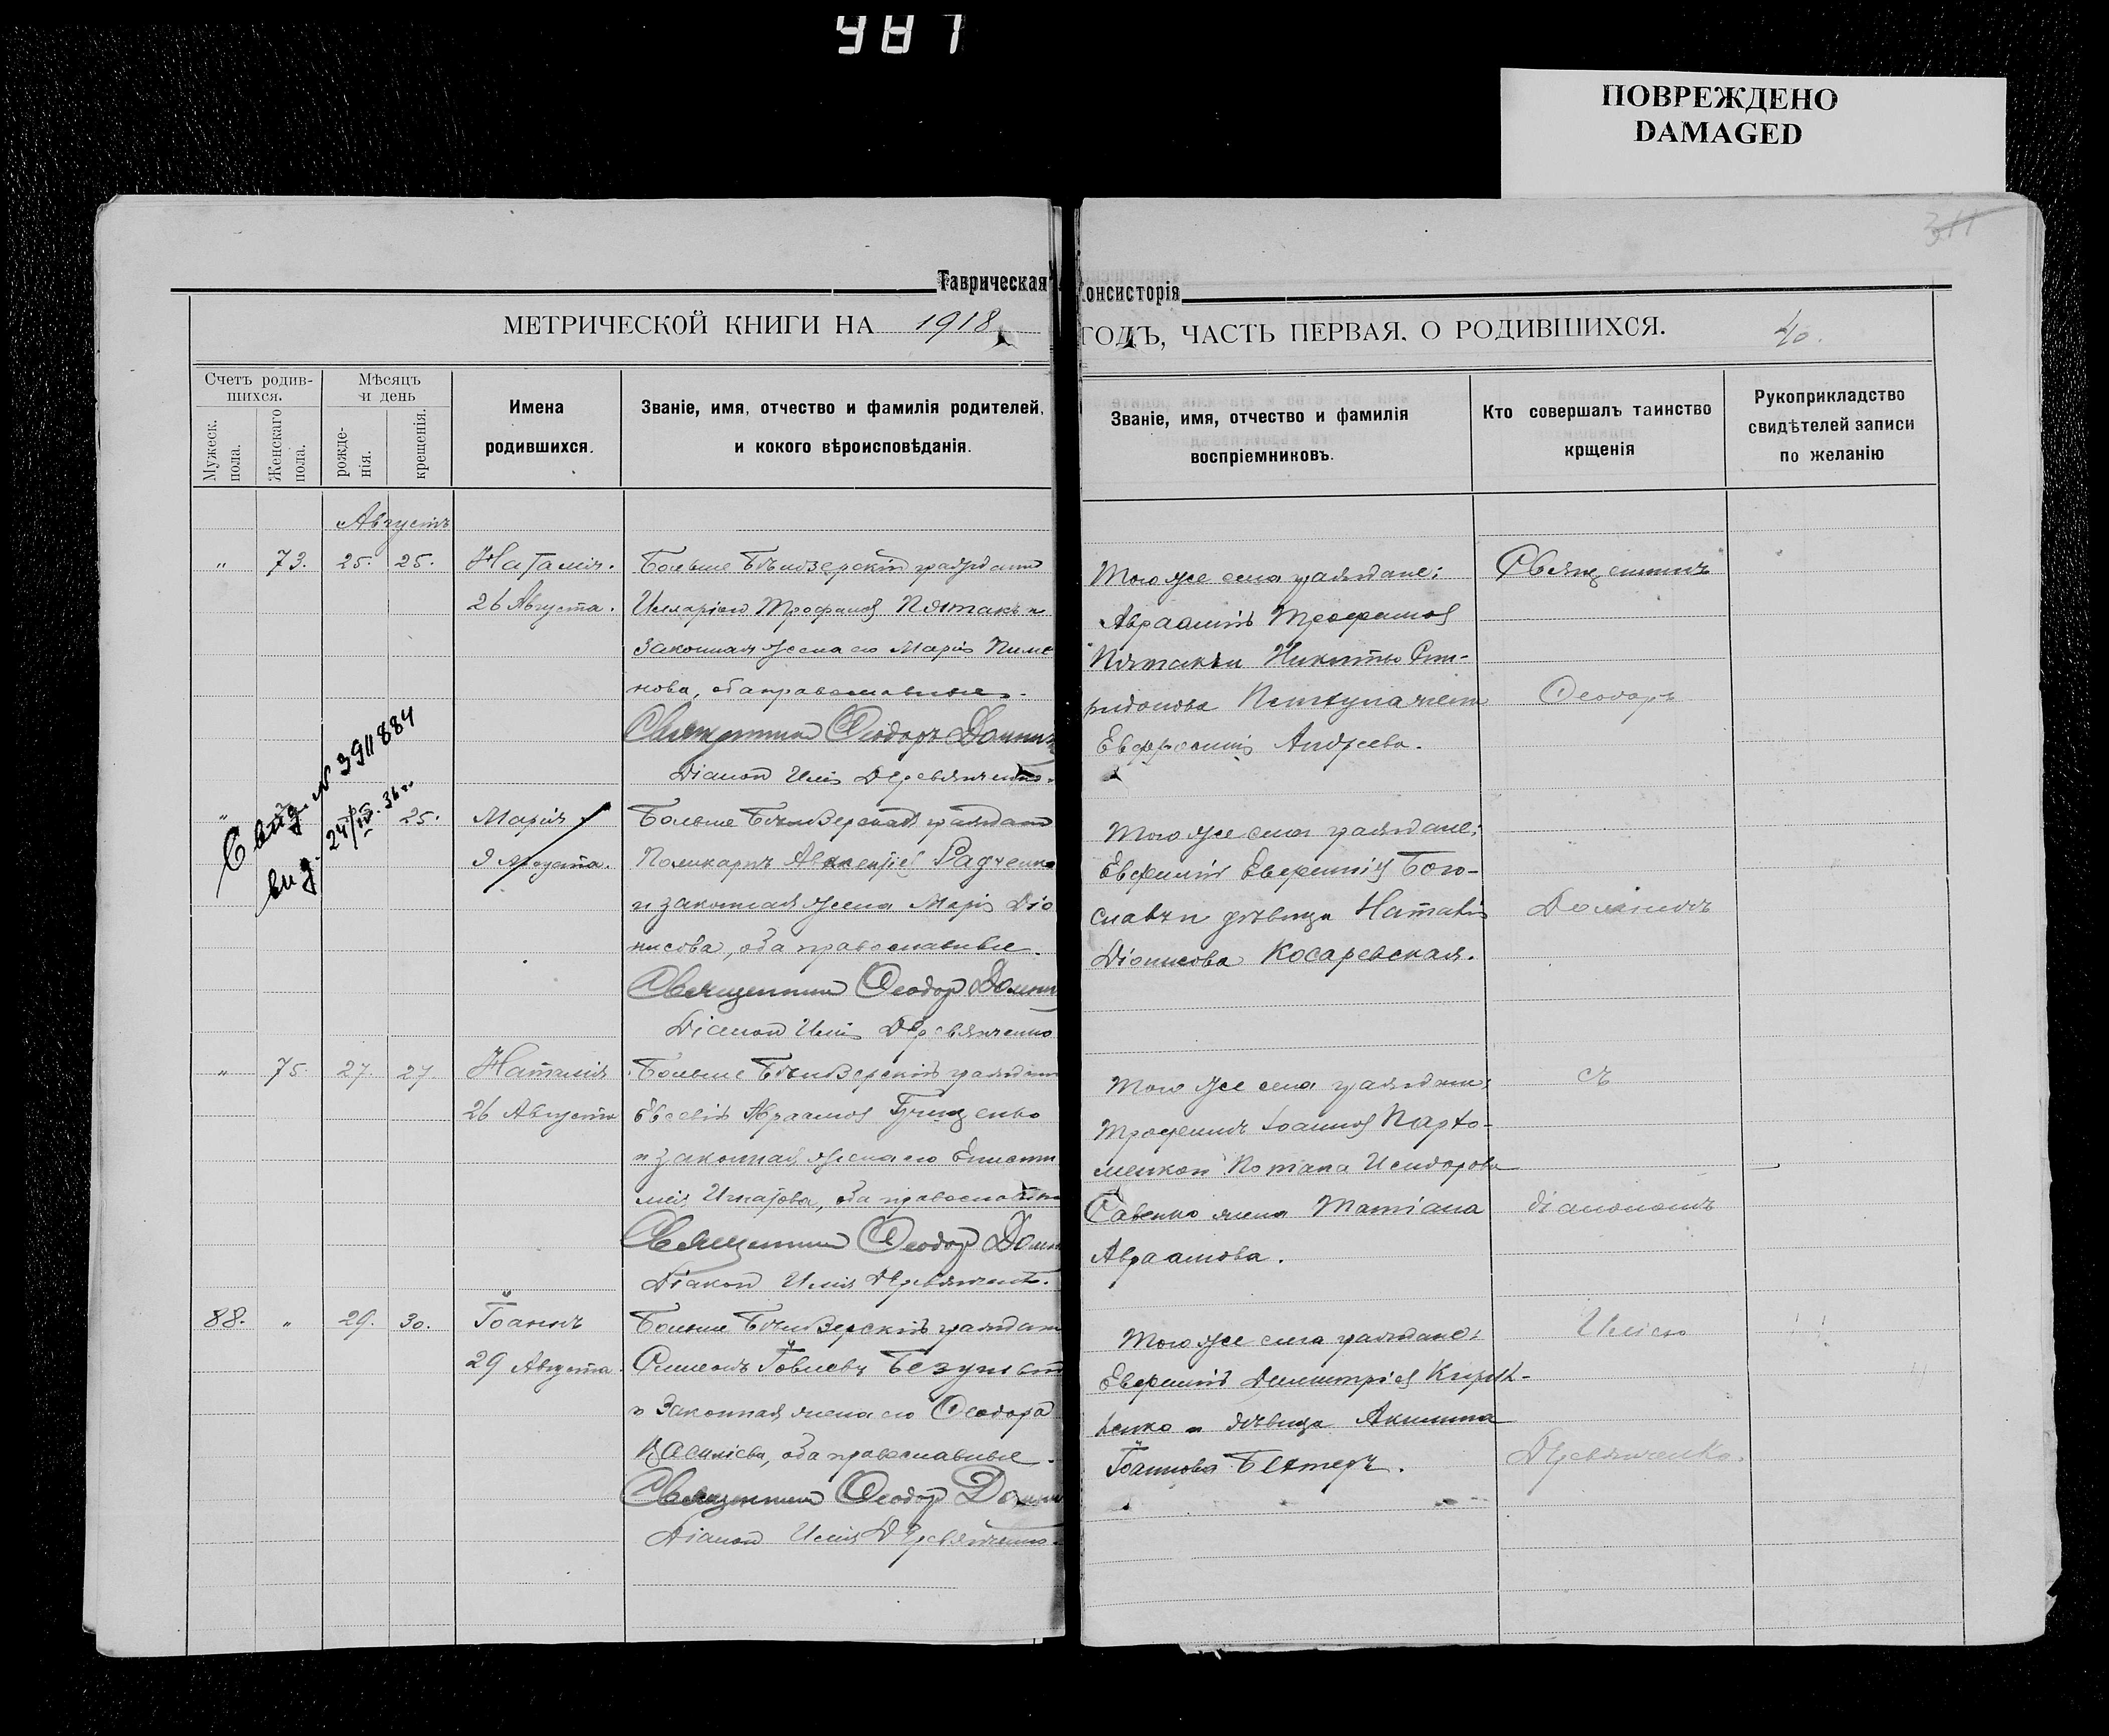 987
ПОВРЕЖДЕНО
DAMAGED
311
Таврическая
Консисторія
МЕТРИЧЕСКОЙ КНИГИ НА 1918
ГОДЪ, ЧАСТЬ ПЕРВАЯ. О РОДИВШИХСЯ.
40.
Счетъ родив-
шихся.
Мужеск.
пола.
Женскаго
пола.
Мѣсяцъ
и день
рожде-
нія.
крещенія.
Имена
родившихся.
Званіе, имя, отчество и фамилія родителей,
и кокого вѣроисповѣданія.
Званіе, имя, отчество и фамилія
воспріемниковъ.
Кто совершалъ таинство
крщенія
Рукоприкладство
свидѣтелей записи
по желанію
Августъ
" 73. 25. 25. Наталія.
26 Августа.
Больше Бѣлозерскій гражданин
Иларіон Трофимов Пятакъ и
законная жена его Марія Пиме
нова, оба православные.
Священник Ѳеодоръ
Діакон Илія Деревянченко.
Того же села граждане:
Авраамій Трофимов
Пятакъ и Никиты Спи-
ридонова жена
Евфросинія Андреева.
Священникъ
Ѳеодоръ
Свид. № 3911884
выд. 24/IV. 36 г.
" 25. Марія
Августа.
Больше Бѣлозерский граждан
Поликарпъ Радченко
и законная жена Марія Діо
нисова, оба православные.
Священник Ѳеодор
Діакон Илія Деревянченко
Того же села граждане:
Евфимій Евфиміев Бого-
славъ и дѣвица Наталія
Діонисова Косаревская.
" 75. 27. 27 Наталія
26 Августа
Больше Бѣлозерскій граждан
Евсевій Авраамов Грищенко
и законная жена его Еписти
мія Игнатова, оба православные
Священник Ѳеодор
Діакон Илія Деревянченко.
Того же села граждане:
Трофимъ Іоаннов Пархо-
менко и Потапа Исидорова
Савенко жена Татіана
Авраамова.
съ
діакономъ
88. " 29. 30. Іоаннъ
29 Августа.
Больше Бѣлозерскій граждан
Симеонъ Іовлевъ
и законная жена его Ѳеодора
Василіева, оба православные.
Священник Ѳеодор
Діакон Илія Деревянченко.
Того же села граждане:
Евфимій Димитріев Кири-
ченко и дѣвица Акилина
Іоаннова Бехтеръ.
Иліею
Деревянченко.